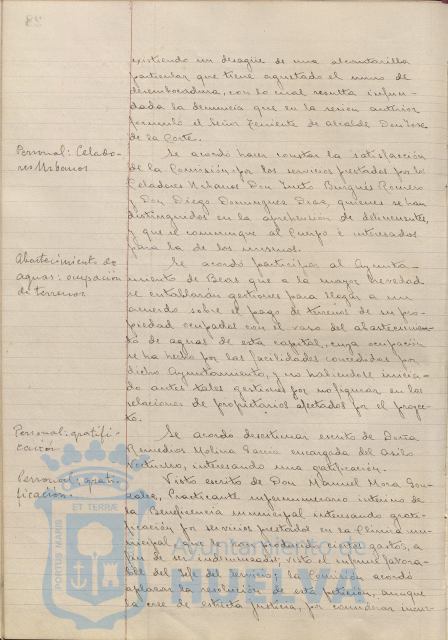 existiendo un desagüe de una alcantarilla
particular que tiene agrietado el muro de
desembocadura, con lo cual resulta infun-
dada la denuncia que en la sesion anterior
formuló el Señor Teniente de alcalde Don José
de la Corte.
Personal: Celado-
res Urbanos
Se acordó hacer constar la satisfacción
de la Comisión por los servicios prestados por los
Celadores Urbanos Don Justo Burgués Romero
y Don Diego Dominguez Diaz, quienes se han
distinguidos en la aprehensión de delincuentes,
y que se comunique al Cuerpo e interesados
para la de los mismos.
Abastecimiento de
aguas: ocupación
de terrenos
Se acordó participar al Ayunta-
miento de Beas que a la mayor brevedad
se entablarán gestiones para llegar a un
acuerdo sobre el pago de terrenos de su pro-
piedad ocupados con el vaso del abastecimien-
to de aguas de esta capital, cuya ocupación
se ha hecho por las facilidades concedidas por
dicho Ayuntamiento, y no habiendose inicia-
do antes tales gestiones por no figurar en las
relaciones de propietarios afectados por el proyec-
to.
Personal: gratifi-
cación
Se acordo desestimar escrito de Doña
Remedios Molina Garcia encargada del Asilo
Nocturno, interesando una gatificación.
Personal: grati-
ficación.
Visto escrito de Don Manuel Mora Gon-
zalez, Practicante supernumerario interino de
la Beneficencia municipal intensando grati-
ficación por servicios prestados en la Clinica mu-
nicipal que le han producido unos gastos, a
fin de ser indemnizado, visto el informe favora-
ble del Jefe del servicio; la Comisión acordó
aplazar la resolución de esta petición, aunque
la cree de estricta justicia, por considerar incur-
PORTUS MARIS ET TERRAE
Ayuntamiento de
HUELVA